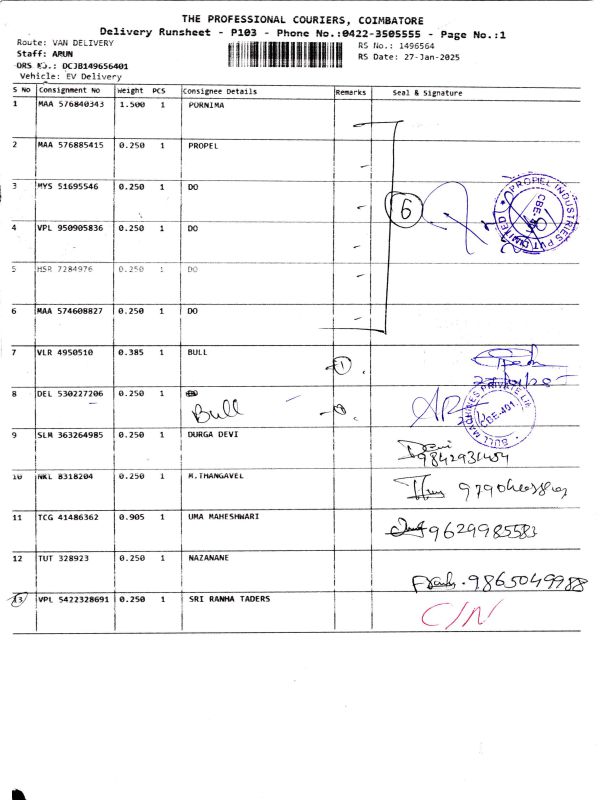 THE PROFESSIONAL COURIERS, COIMBATORE
Delivery Runsheet - P103 - Phone No.:0422-3505555 - Page No.:1
Route: VAN DELIVERY
RS No.: 1496564
Staff: ARUN
RS Date: 27-Jan-2025
DRS No.: DCJB149656401
Vehicle: EV Delivery
S No Consignment No Weight PCS Consignee Details Remarks Seal & Signature
1 MAA 576840343 1.500 1 PURNIMA
2 MAA 576885415 0.250 1 PROPEL
3 MYS 51695546 0.250 1 DO
6
PROPEL INDUSTRIES PVT LIMITED
CBE-
4 VPL 950905836 0.250 1 DO
5 HSR 7284976 0.250 1 DO
6 MAA 574608827 0.250 1 DO
7 VLR 4950510 0.385 1 BULL
1
8 DEL 530227206 0.250 1
Bull
BULL MACHINES PRIVATE LIM
CBE-401
9 SLM 363264985 0.250 1 DURGA DEVI
Devi
10 NKL 8318204 0.250 1 M.THANGAVEL
11 TCG 41486362 0.905 1 UMA MAHESHWARI
9629985583
12 TUT 328923 0.250 1 NAZANANE
9865049988
13 VPL 5422328691 0.250 1 SRI RANHA TADERS
C/N